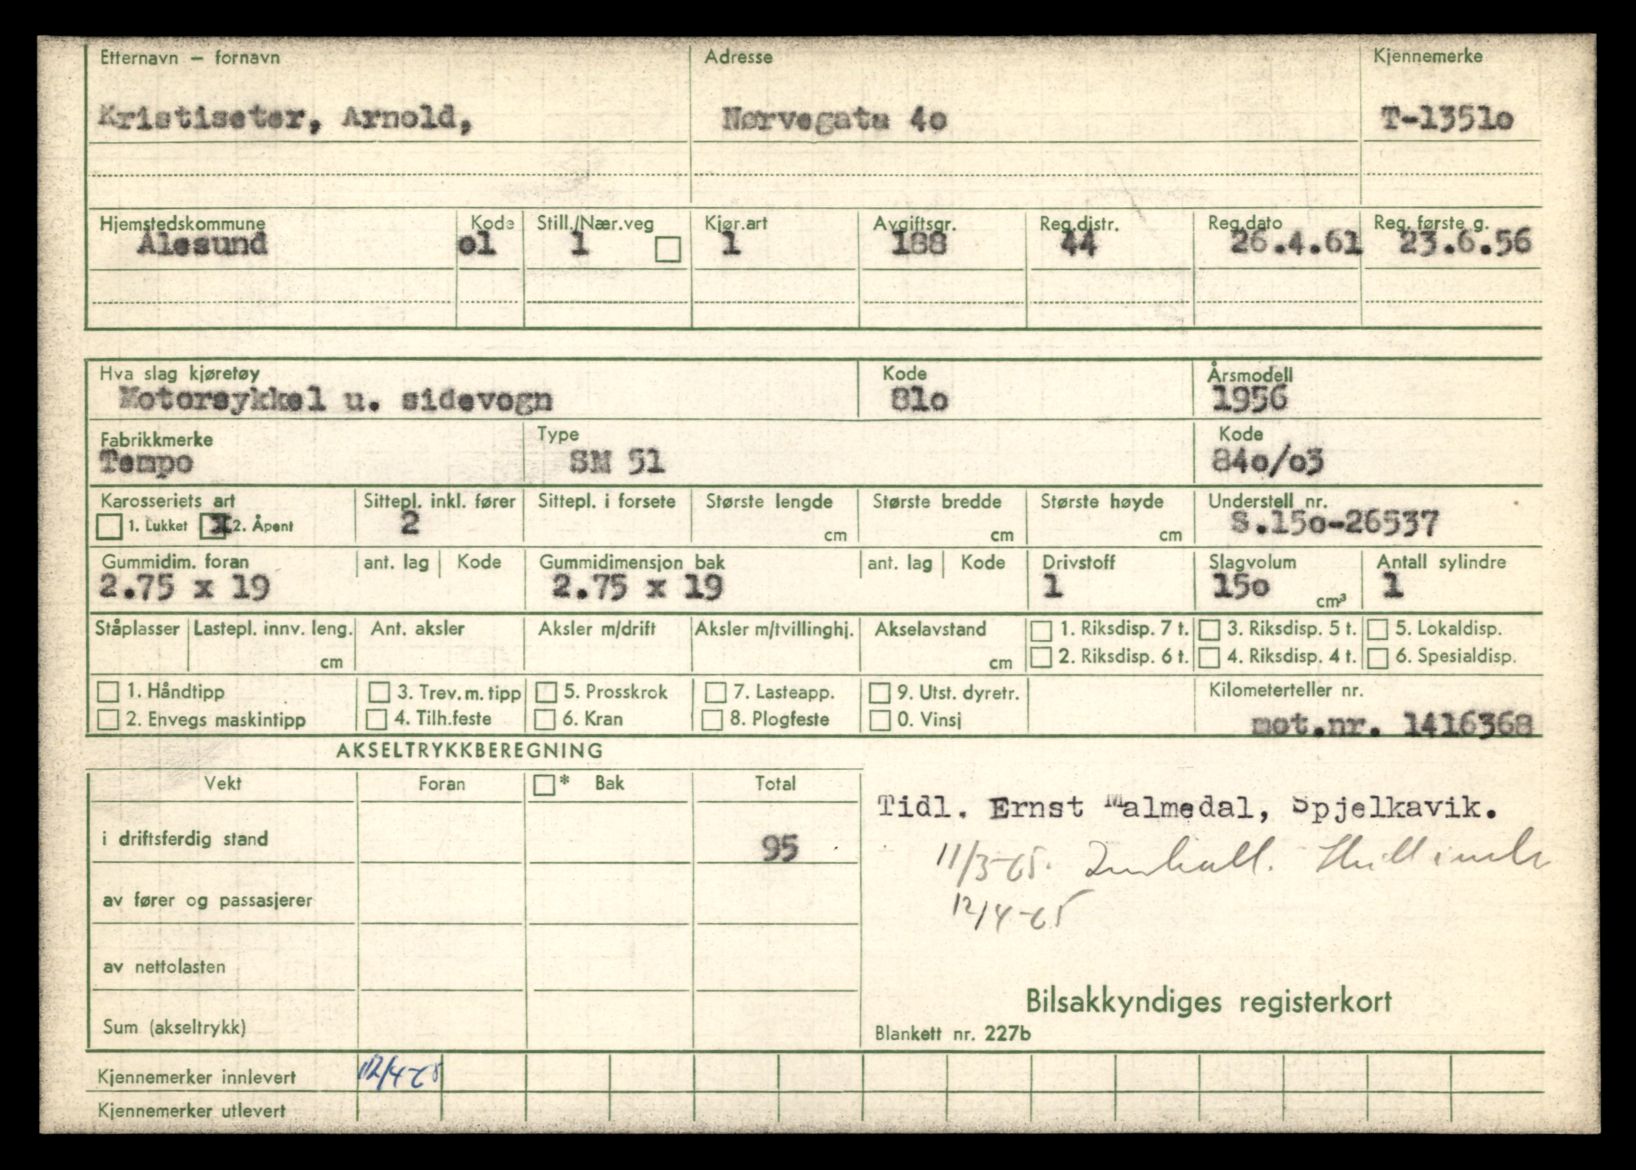 Etternavn – fornavn Adresse Kjennemerke
Kristiseter, Arnold, Nørvegata 4o T-1351o
Hjemstedskommune Kode Still./Nær.veg Kjør.art Avgiftsgr. Reg.distr. Reg.dato Reg. første g.
Ålesund o1 1 1 188 44 26.4.61 23.6.56
Hva slag kjøretøy Kode Årsmodell
Motorsykkel u. sidevogn 81o 1956
Fabrikkmerke Type Kode
Tempo SM 51 84o/o3
Karosseriets art Sittepl. inkl. fører Sittepl. i forsete Største lengde Største bredde Største høyde Understell nr.
1. Lukket x 2. Åpent 2 cm cm cm S.15o-26537
Gummidim. foran ant. lag Kode Gummidimensjon bak ant. lag Kode Drivstoff Slagvolum Antall sylindre
2.75 x 19 2.75 x 19 1 15o cm³ 1
Ståplasser Lastepl. innv. leng. Ant. aksler Aksler m/drift Aksler m/tvillinghj. Akselavstand 1. Riksdisp. 7 t. 3. Riksdisp. 5 t. 5. Lokaldisp.
cm cm 2. Riksdisp. 6 t. 4. Riksdisp. 4 t. 6. Spesialdisp.
1. Håndtipp 3. Trev. m. tipp 5. Prosskrok 7. Lasteapp. 9. Utst. dyretr. Kilometerteller nr.
2. Envegs maskintipp 4. Tilh.feste 6. Kran 8. Plogfeste 0. Vinsj mot.nr. 1416368
AKSELTRYKKBEREGNING
Vekt Foran * Bak Total
Tidl. Ernst Malmedal, Spjelkavik.
i driftsferdig stand 95
11/3-65.
av fører og passasjerer
12/4-65
av nettolasten
Bilsakkyndiges registerkort
Sum (akseltrykk)
Blankett nr. 227b
Kjennemerker innlevert 12/4-65
Kjennemerker utlevert